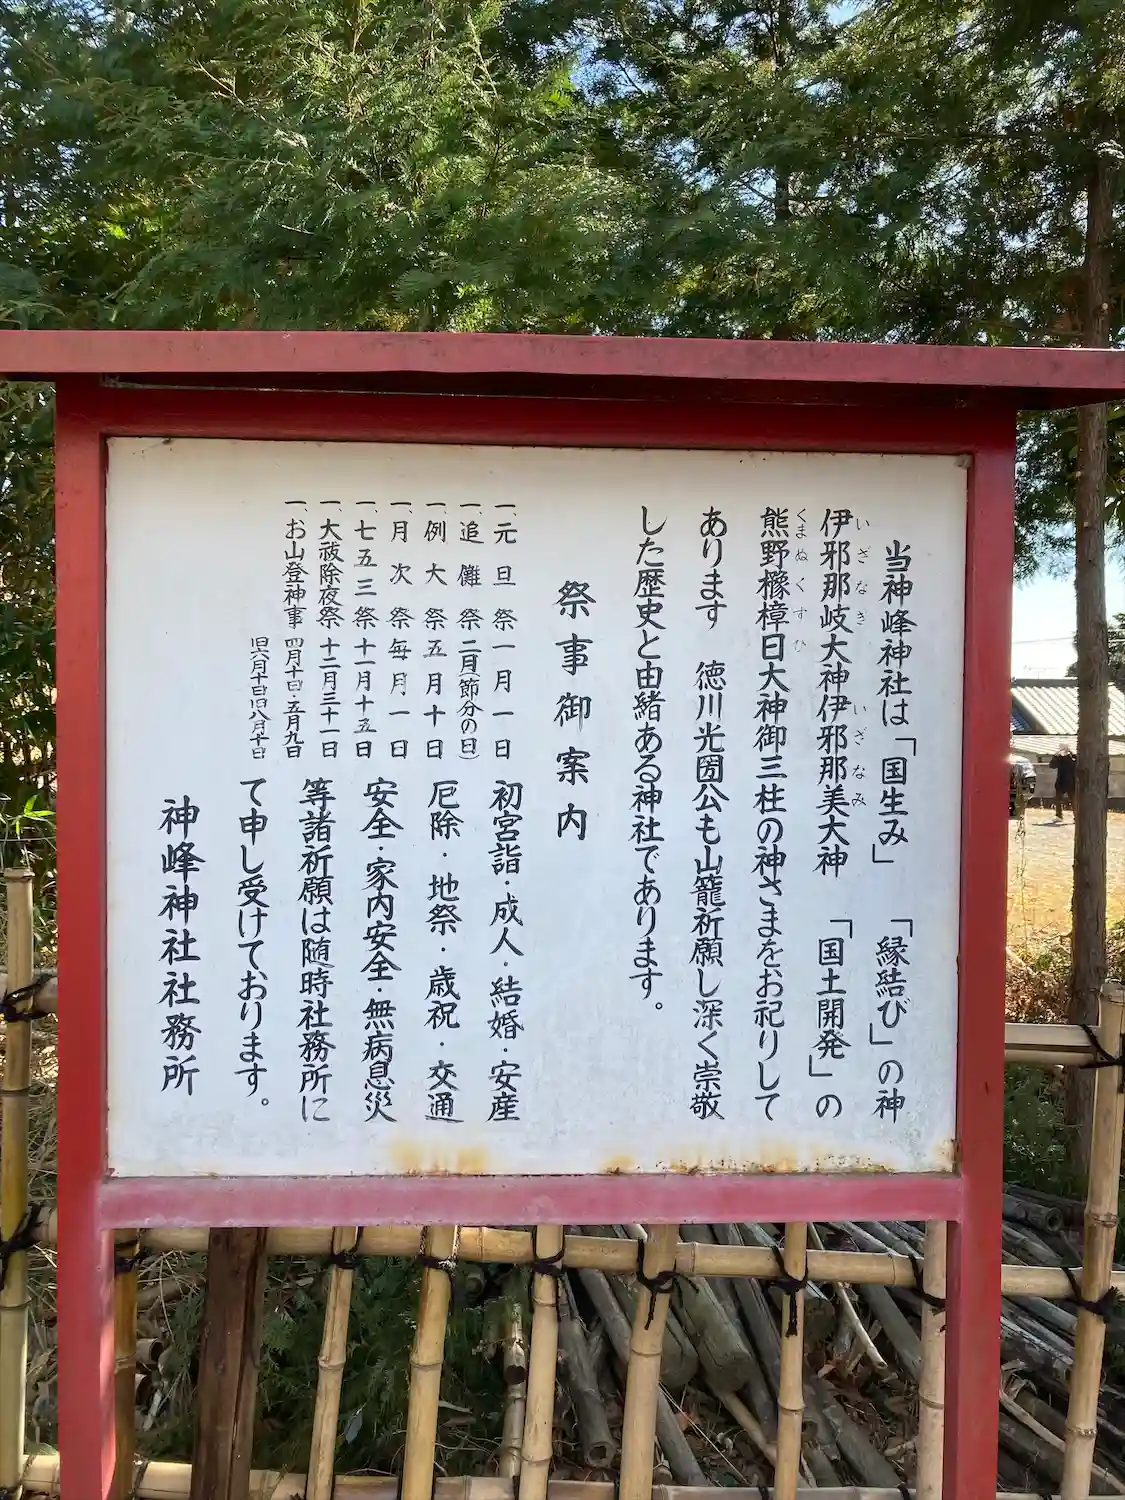 当神峰神社は「国生み」「縁結び」の神
伊邪那岐大神伊邪那美大神「国土開発」の
いざなき いざなみ
熊野櫲樟日大神御三柱の神さまをお祀りして
くまぬくすひ
あります 徳川光圀公も山籠祈願し深く崇敬
した歴史と由緒ある神社であります。
祭事御案内
一、元旦祭 一月一日
一、追儺祭 二月(節分の日)
一、例大祭 五月十日
一、月次祭 毎月一日
一、七五三祭 十一月十五日
一、大祓除夜祭 十二月三十一日
一、お山登神事 四月十日・五月九日
旧六月十日旧八月十日
初宮詣・成人・結婚・安産
厄除・地祭・歳祝・交通
安全・家内安全・無病息災
等諸祈願は随時社務所に
て申し受けております。
神峰神社社務所